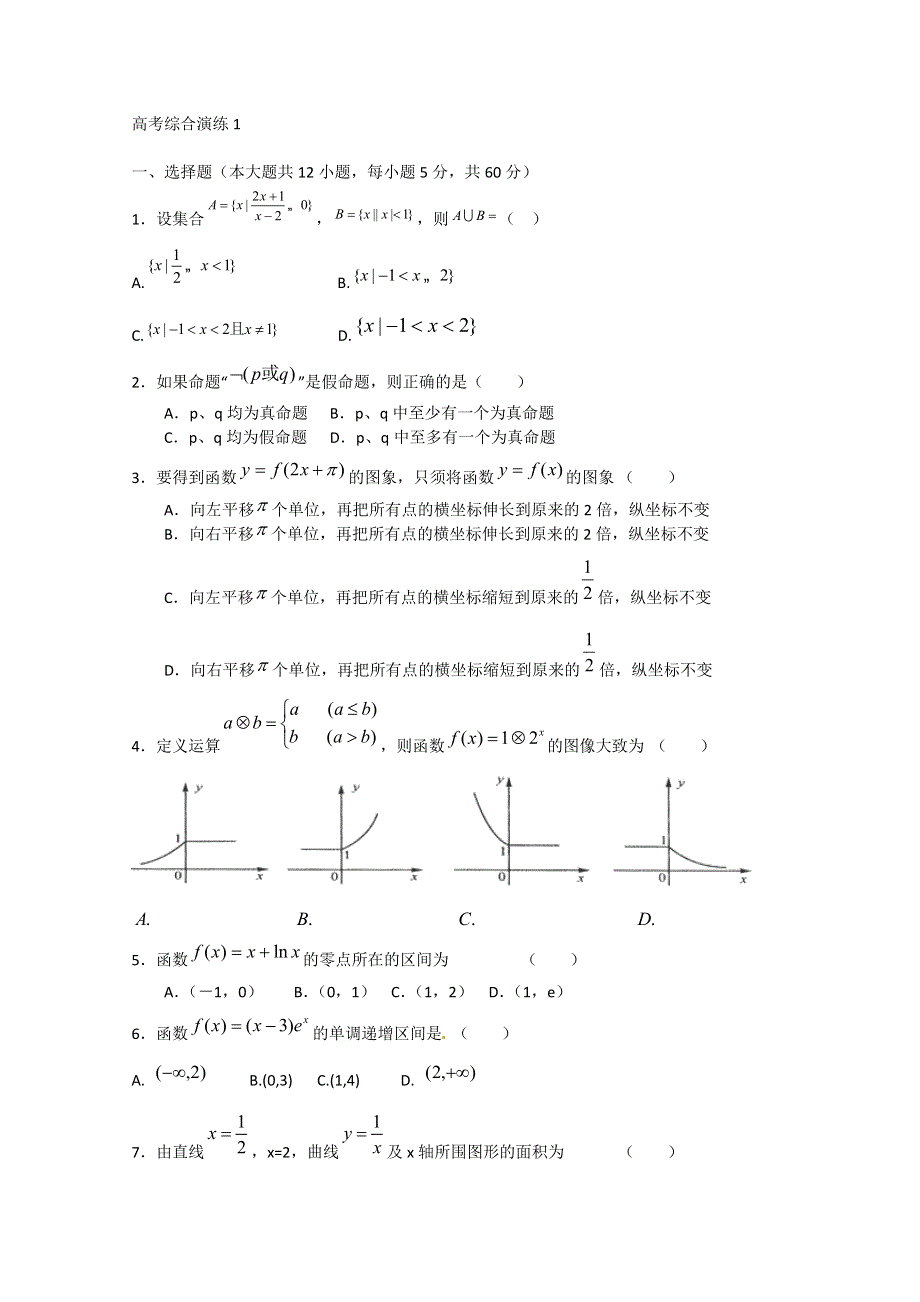 高考综合演练1
一、选择题（本大题共12小题，每小题5分，共60分）
1．设集合 A={x|\frac{2x+1}{x-2}„ 0}，B={x||x|<1}，则 A∪B=（　）
A.{x|\frac{1}{2}„ x<1}　B.{x|−1<x„ 2}
C.{x|−1<x<2且x≠1}　D.{x|−1<x<2}
2．如果命题“¬(p或q)”是假命题，则正确的是（　　）
A．p、q均为真命题　B．p、q中至少有一个为真命题
C．p、q均为假命题　D．p、q中至多有一个为真命题
3．要得到函数 y=f(2x+π) 的图象，只须将函数 y=f(x) 的图象（　　）
A．向左平移π个单位，再把所有点的横坐标伸长到原来的2倍，纵坐标不变
B．向右平移π个单位，再把所有点的横坐标伸长到原来的2倍，纵坐标不变
C．向左平移π个单位，再把所有点的横坐标缩短到原来的\frac{1}{2}倍，纵坐标不变
D．向右平移π个单位，再把所有点的横坐标缩短到原来的\frac{1}{2}倍，纵坐标不变
4．定义运算 a⊗b={a (a≤b) b (a>b)，则函数 f(x)=1⊗2^x 的图像大致为（　　）
y 1 0 x　y 1 0 x　y 1 0 x　y 1 0 x
A.　B.　C.　D.
5．函数 f(x)=x+ln x 的零点所在的区间为（　　）
A．（－1，0）　B．（0，1）　C．（1，2）　D．（1，e）
6．函数 f(x)=(x−3)e^x 的单调递增区间是（　　）
A. (−∞,2)　B.(0,3)　C.(1,4)　D. (2,+∞)
7．由直线 x=\frac{1}{2}，x=2，曲线 y=\frac{1}{x} 及x轴所围图形的面积为（　　）